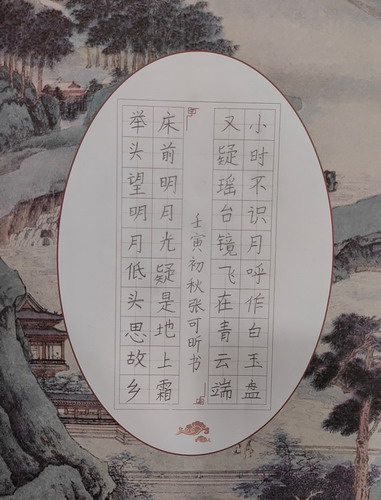 小时不识月呼作白玉盘
又疑瑶台镜飞在青云端
壬寅初秋张可昕书
床前明月光疑是地上霜
举头望明月低头思故乡